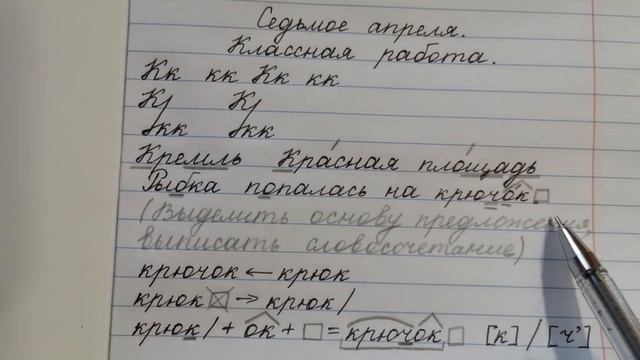 Седьмое апреля.
Классная работа.
Кк кк Кк кк
К/ К/
/кк /кк
Кремль Красная площадь
Рыбка попалась на крючок.
(Выделить основу предложения,
выписать словосочетание)
крючок ← крюк
крюк☒ → крюк/
крюк/ + ок + □ = крючок□ [к] / [ч']